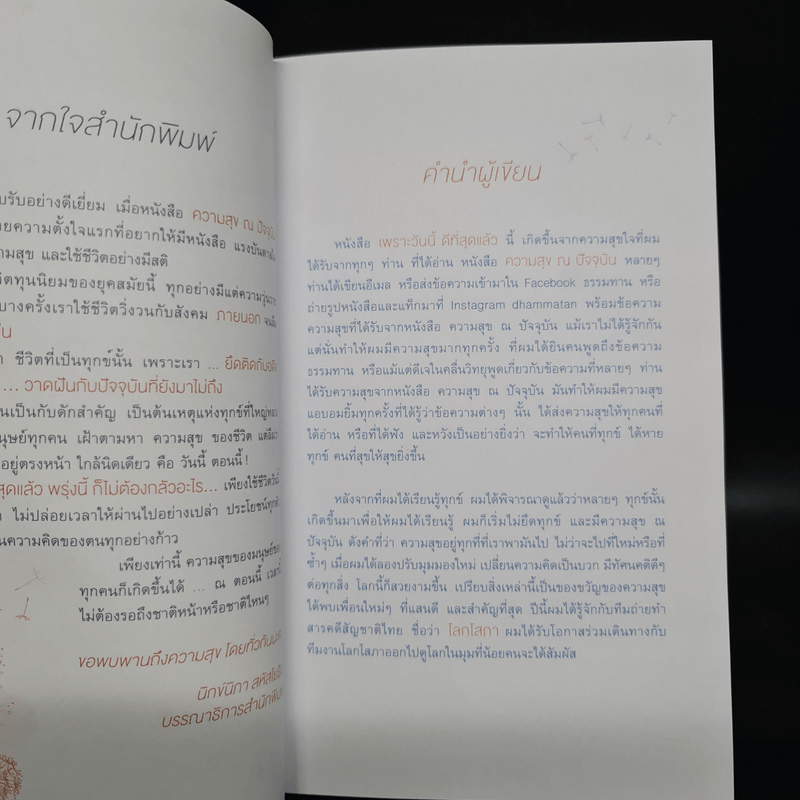 จากใจสำนักพิมพ์
บรับอย่างดีเยี่ยม เมื่อหนังสือ ความสุข ณ ปัจจุบัน
ยความตั้งใจแรกที่อยากให้มีหนังสือ แรงบันดาลใจ
ามสุข และใช้ชีวิตอย่างมีสติ
วิตทุนนิยมของยุคสมัยนี้ ทุกอย่างมีแต่ความวุ่นวาย
บางครั้งเราใช้ชีวิตวิ่งวนกับสังคม ภายนอก
ัน
า ชีวิตที่เป็นทุกข์นั้น เพราะเรา ... ยึดติดกับอดีต
... วาดฝันกับปัจจุบันที่ยังมาไม่ถึง
นเป็นกับดักสำคัญ เป็นต้นเหตุแห่งทุกข์ที่ใหญ่หลวง
นุษย์ทุกคน เฝ้าตามหา ความสุข ของชีวิต แต่ลืม
อยู่ตรงหน้า ใกล้นิดเดียว คือ วันนี้ ตอนนี้ !
สุดแล้ว พรุ่งนี้ ก็ไม่ต้องกลัวอะไร... เพียงใช้ชีวิตวันนี้
า ไม่ปล่อยเวลาให้ผ่านไปอย่างเปล่า ประโยชน์
นความคิดของตนทุกอย่างก้าว
เพียงเท่านี้ ความสุขของมนุษย์
ทุกคนก็เกิดขึ้นได้ ... ณ ตอนนี้
ไม่ต้องรอถึงชาติหน้าหรือชาติไหนๆ
ขอพบพานถึงความสุข โดยทั่วกัน
นิกข์นิภา
บรรณาธิการสำนักพิมพ์
คำนำผู้เขียน
หนังสือ เพราะวันนี้ ดีที่สุดแล้ว นี้ เกิดขึ้นจากความสุขใจที่ผม
ได้รับจากทุกๆ ท่าน ที่ได้อ่าน หนังสือ ความสุข ณ ปัจจุบัน หลายๆ
ท่านได้เขียนอีเมล หรือส่งข้อความเข้ามาใน Facebook ธรรมทาน หรือ
ถ่ายรูปหนังสือและแท็กมาที่ Instagram dhammatan พร้อมข้อความ
ความสุขที่ได้รับจากหนังสือ ความสุข ณ ปัจจุบัน แม้เราไม่ได้รู้จักกัน
แต่นั่นทำให้ผมมีความสุขมากทุกครั้ง ที่ผมได้ยินคนพูดถึงข้อความ
ธรรมทาน หรือแม้แต่ดีเจในคลื่นวิทยุพูดเกี่ยวกับข้อความที่หลายๆ ท่าน
ได้รับความสุขจากหนังสือ ความสุข ณ ปัจจุบัน มันทำให้ผมมีความสุข
แอบอมยิ้มทุกครั้งที่ได้รู้ว่าข้อความต่างๆ นั้น ได้ส่งความสุขให้ทุกคนที่
ได้อ่าน หรือที่ได้ฟัง และหวังเป็นอย่างยิ่งว่า จะทำให้คนที่ทุกข์ ได้หาย
ทุกข์ คนที่สุขให้สุขยิ่งขึ้น
หลังจากที่ผมได้เรียนรู้ทุกข์ ผมได้พิจารณาดูแล้วว่าหลายๆ ทุกข์นั้น
เกิดขึ้นมาเพื่อให้ผมได้เรียนรู้ ผมก็เริ่มไม่ยึดทุกข์ และมีความสุข ณ
ปัจจุบัน ดังคำที่ว่า ความสุขอยู่ทุกที่ที่เราพามันไป ไม่ว่าจะไปที่ใหม่หรือที่
ซ้ำๆ เมื่อผมได้ลองปรับมุมมองใหม่ เปลี่ยนความคิดเป็นบวก มีทัศนคติดีๆ
ต่อทุกสิ่ง โลกนี้ก็สวยงามขึ้น เปรียบสิ่งเหล่านี้เป็นของขวัญของความสุข
ได้พบเพื่อนใหม่ๆ ที่แสนดี และสำคัญที่สุด ปีนี้ผมได้รู้จักกับทีมถ่ายทำ
สารคดีสัญชาติไทย ชื่อว่า โลกโสภา ผมได้รับโอกาสร่วมเดินทางกับ
ทีมงานโลกโสภาออกไปดูโลกในมุมที่น้อยคนจะได้สัมผัส